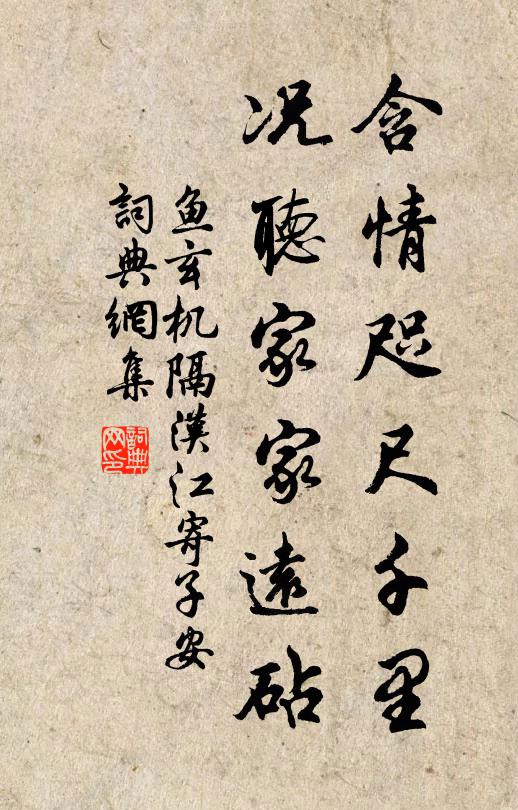 含情咫尺千里
况聽家家遠砧
鱼玄机隔漢江寄子安
詞典網集
詞典网印